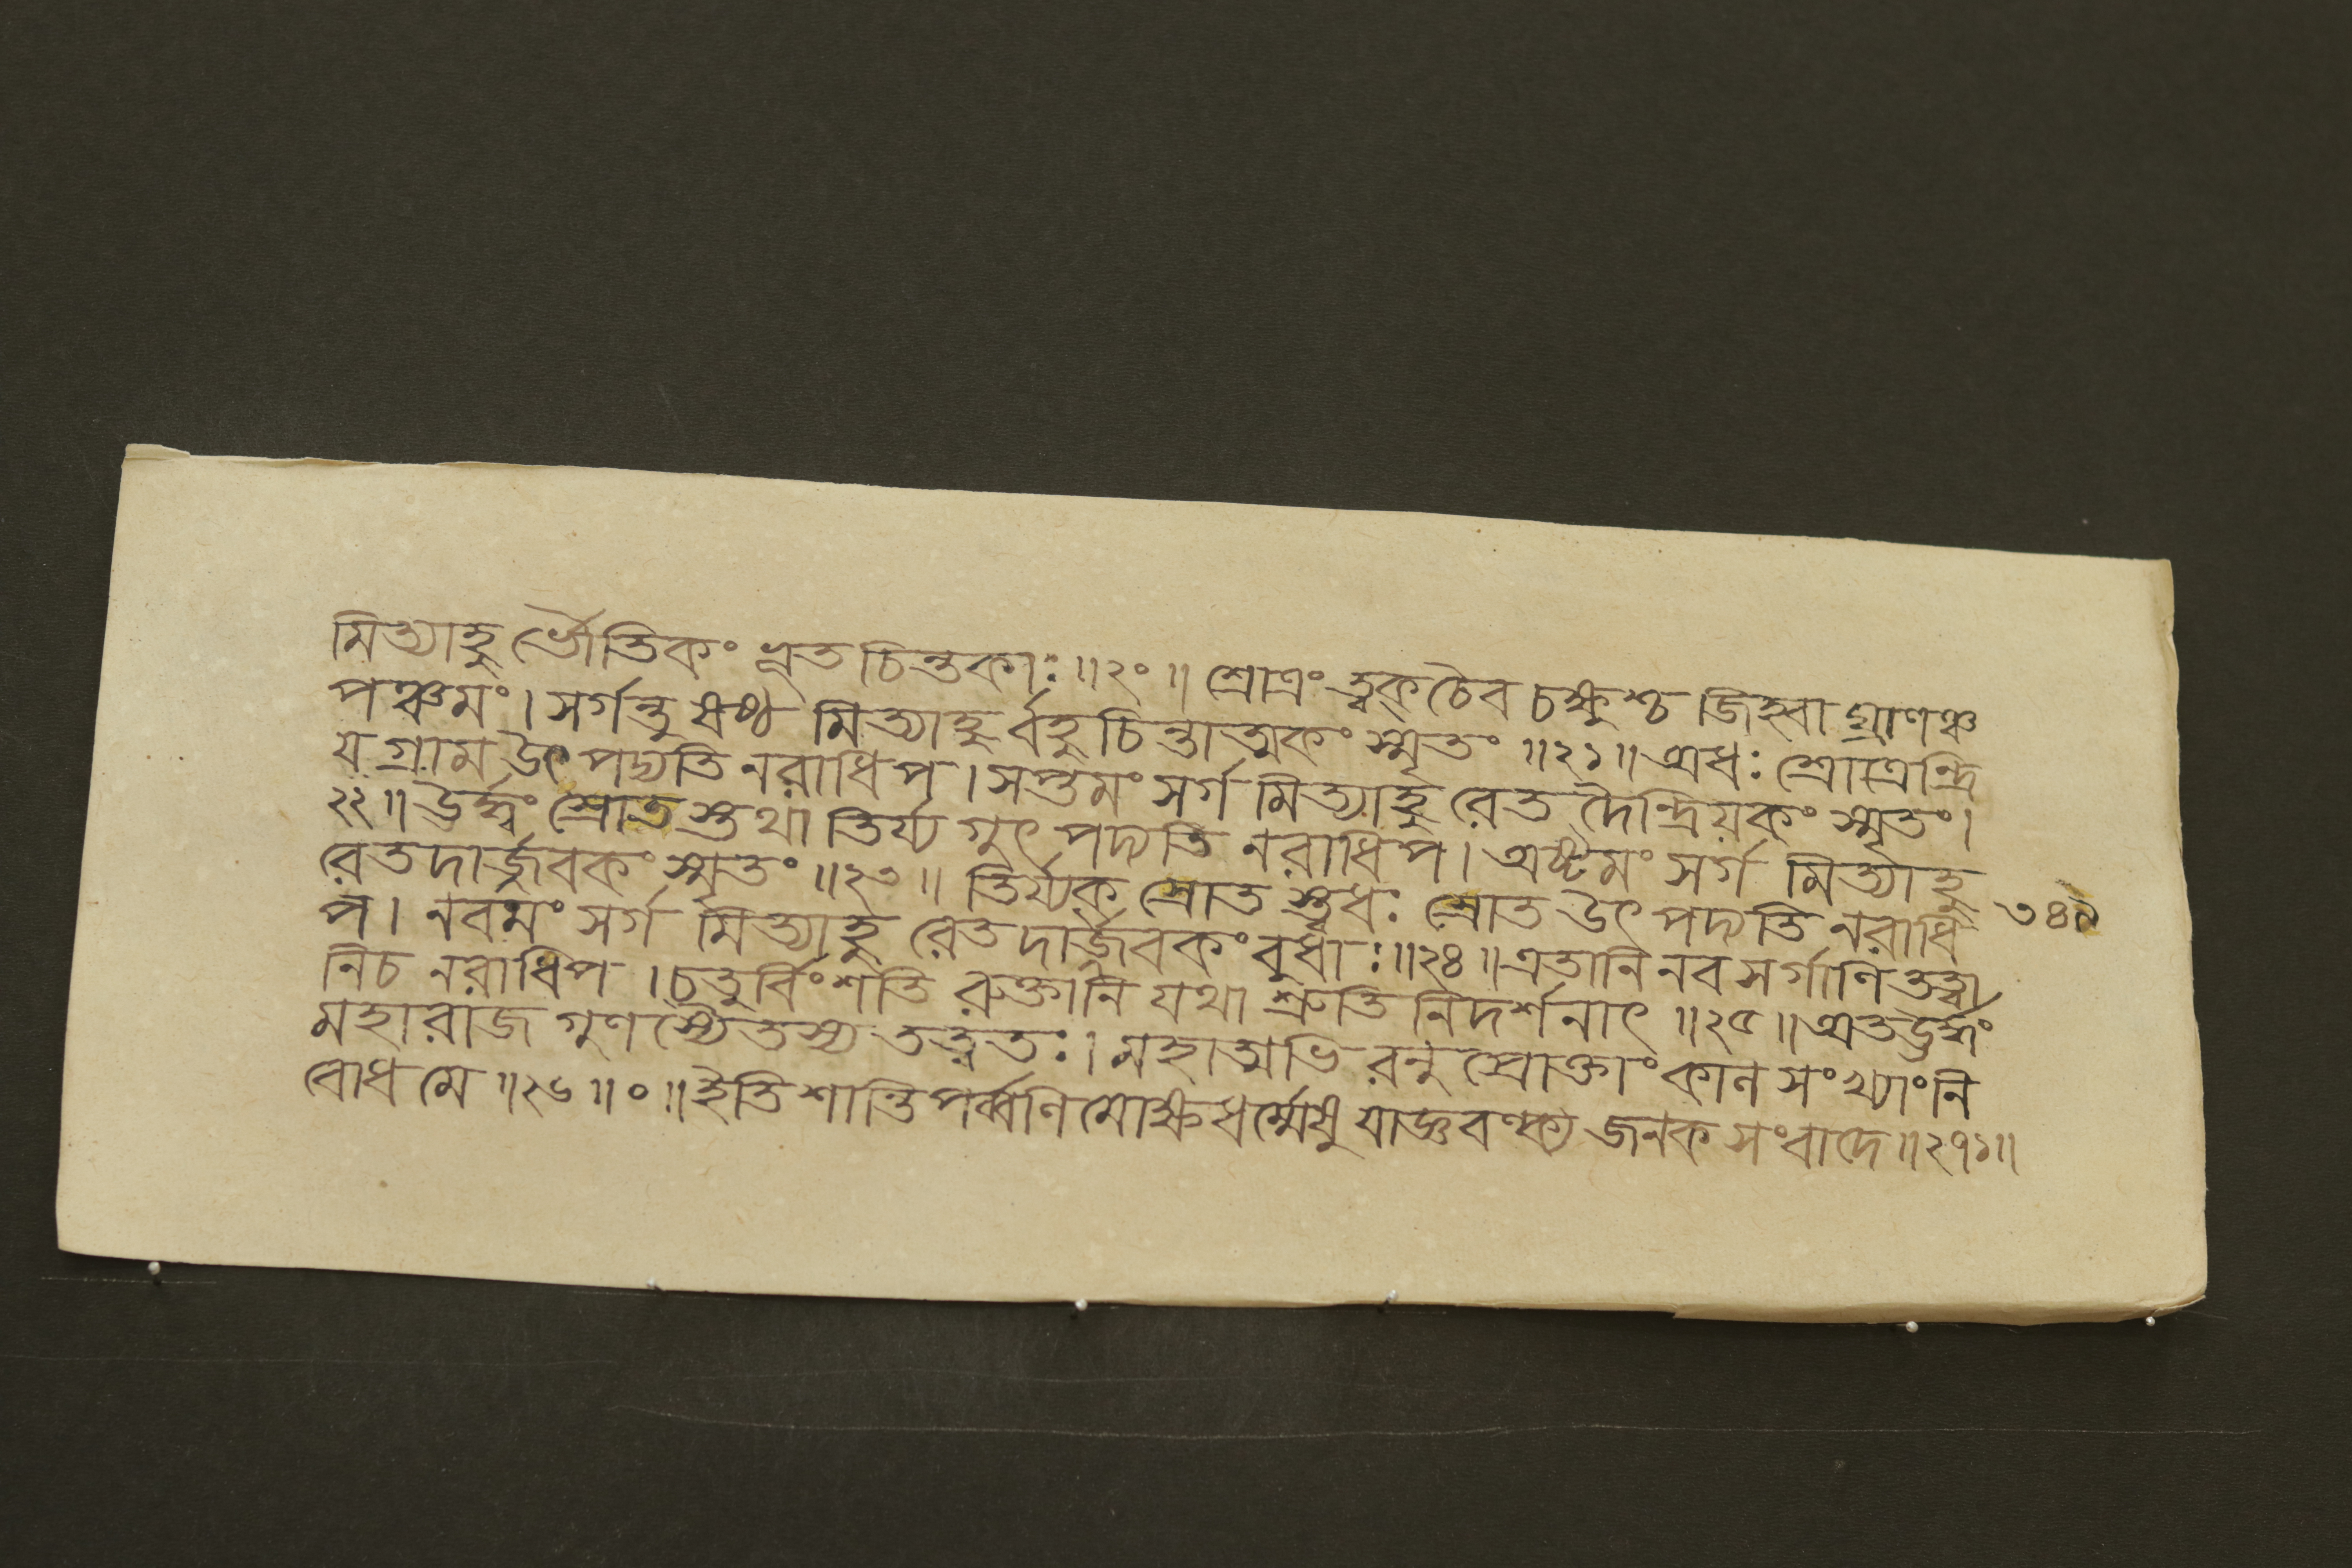 মিত্যাহু র্ভৌতিকং ভূত চিন্তকাঃ ॥২০॥ শ্রোত্রং ত্বক্ চৈব চক্ষুশ্চ জিহ্বা ঘ্রাণঞ্চ
পঞ্চমং । সর্গন্তু ষষ্ঠ মিত্যাহু র্বহু চিন্তাত্মকং স্মৃতং ॥২১॥ অধঃ শ্রোত্রেন্দ্রি
য় গ্রাম উৎপদ্যতি নরাধিপ । সপ্তমং সর্গ মিত্যাহু রেত দৈন্দ্রিয়কং স্মৃতং ।
২২॥ ঊর্দ্ধ্বং শ্রোত স্তথা তির্য্য গুৎ পদ্যতি নরাধিপ । অষ্টমং সর্গ মিত্যাহু
রেতদার্জ্জবকং স্মৃতং ॥২৩॥ তির্য্যক শ্রোত স্ত্বধঃ শ্রোত উৎ পদ্যতি নরাধি
প । নবমং সর্গ মিত্যাহু রেতদার্জ্জবকং বুধাঃ ॥২৪॥ এতানি নব সর্গাণি তত্ত্বা
নিচ নরাধিপ । চতুর্বিংশতি রুক্তানি যথা শ্রুতি নিদর্শনাৎ ॥২৫॥ অতঊর্দ্ধ্বং
মহারাজ গুণ স্যৈতস্য তত্ত্বতঃ । মহাত্মভি রনু প্রোক্তাং কাল সংখ্যাং নি
বোধ মে ॥২৬॥০॥ ইতি শান্তিপর্ব্বণি মোক্ষধর্ম্মেষু যাজ্ঞবল্ক্য জনক সংবাদে ॥২৭১॥